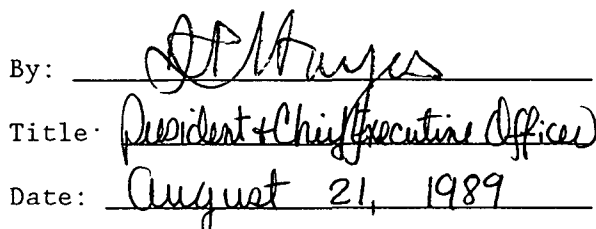 By:
Title: President + Chief Executive Officer
Date: August 21, 1989